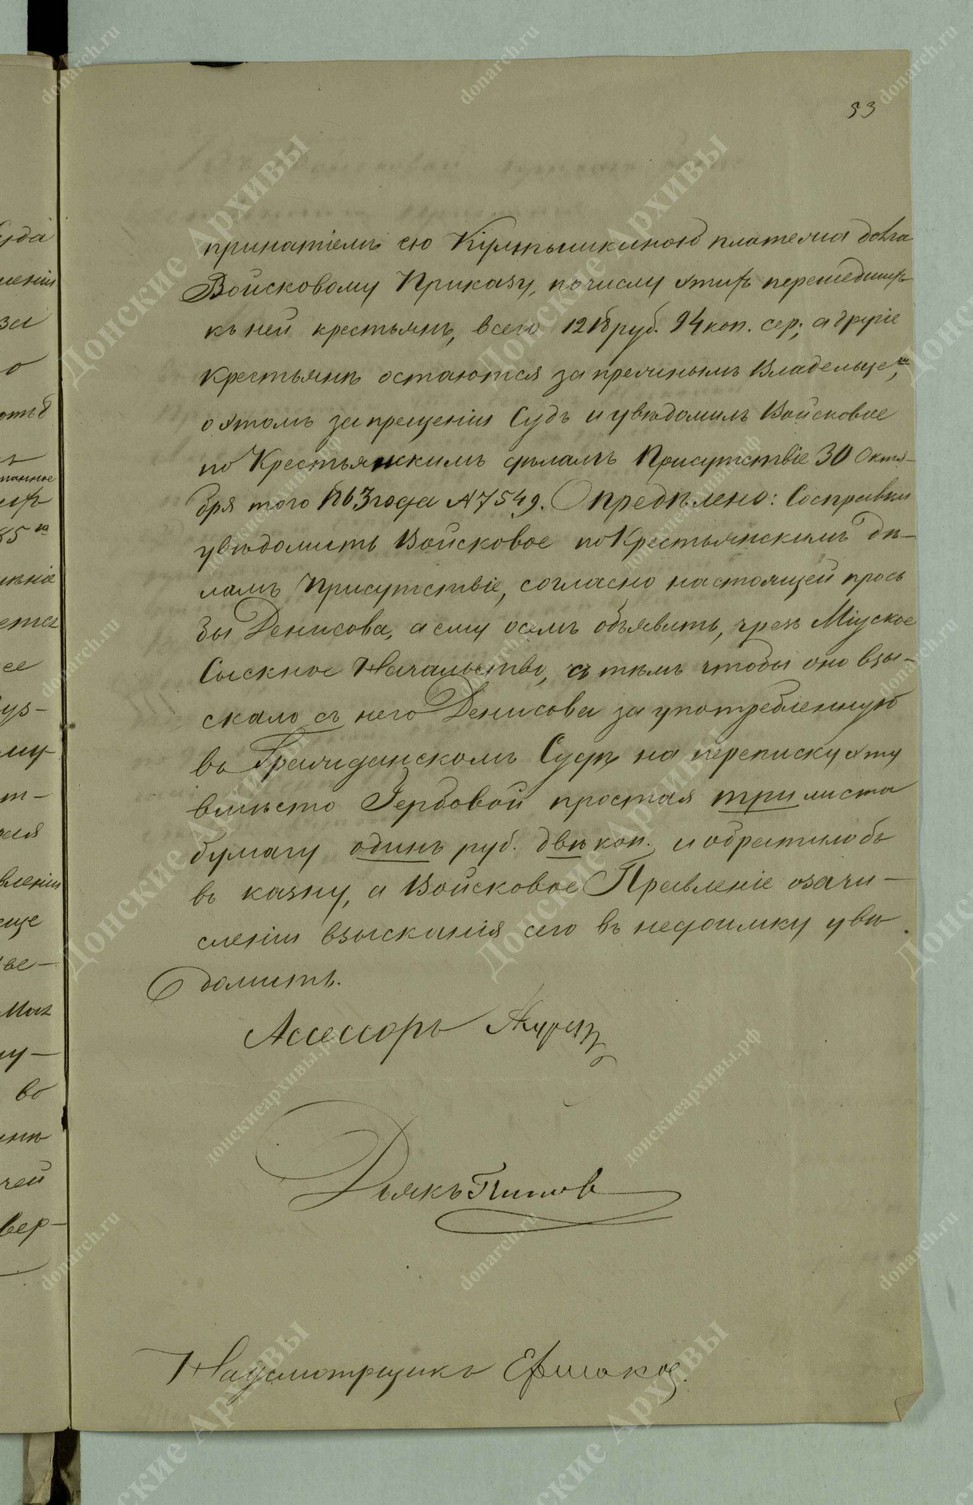 53
принятіемъ ею платежа долга
Войсковому Приказу, по числу этихъ перешедшихъ
къ ней крестьянъ, всего руб. 94 коп. сер; а другіе
крестьяне остаются за прежнимъ Владельце,мъ
о этомъ запрещеніи Судъ и увѣдомилъ Войсковое
по Крестьянскимъ дѣламъ Присутствіе 30 Октя-
бря того 1863 года № 7549. Опредѣлено: Со справки
увѣдомить Войсковое по Крестьянскимъ дѣ-
ламъ Присутствіе, согласно настоящей прось
бы Денисова, а ему о семъ объявить, чрезъ Міуское
Сыскное Начальство, съ тѣмъ чтобы оно взы-
скало съ него Денисова за употребленную
въ Гражданскомъ Судѣ на переписку эту
вмѣсто Гербовой простая три листа
бумагу одинъ руб. двѣ коп. и обратило бъ
въ казну, а Войсковое Правленіе о зачи-
сленіи взысканія сего въ недоимку уви
домить.
Ассессоръ
Дьякъ Поповъ
Надсмотрщикъ Ермаков